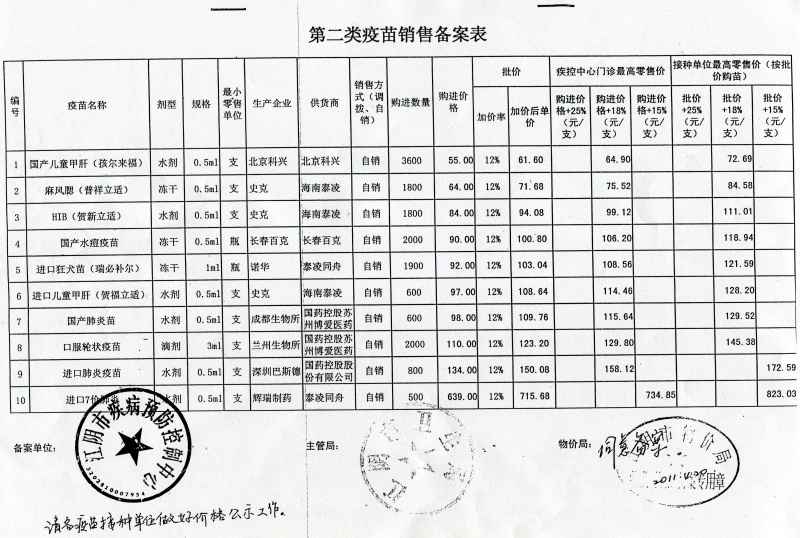 第二类疫苗销售备案表
编号 疫苗名称 剂型 规格 最小零售单位 生产企业 供货商 销售方式（调拨、自销） 购进数量 购进价格 批价 疾控中心门诊最高零售价 接种单位最高零售价（按批价购苗）
加价率 加价后单价 购进价格+25%（元/支） 购进价格+18%（元/支） 购进价格+15%（元/支） 批价+25%（元/支） 批价+18%（元/支） 批价+15%（元/支）
1 国产儿童甲肝（孩尔来福） 水剂 0.5ml 支 北京科兴 北京科兴 自销 3600 55.00 12% 61.60 64.90 72.69
2 麻风腮（普祥立适） 冻干 0.5ml 支 史克 海南泰凌 自销 1800 64.00 12% 71.68 75.52 84.58
3 HIB（贺新立适） 水剂 0.5ml 支 史克 海南泰凌 自销 1800 84.00 12% 94.08 99.12 111.01
4 国产水痘疫苗 冻干 0.5ml 瓶 长春百克 长春百克 自销 2000 90.00 12% 100.80 106.20 118.94
5 进口狂犬苗（瑞必补尔） 冻干 1ml 瓶 诺华 泰凌同舟 自销 1900 92.00 12% 103.04 108.56 121.59
6 进口儿童甲肝（贺福立适） 水剂 0.5ml 支 史克 海南泰凌 自销 600 97.00 12% 108.64 114.46 128.20
7 国产肺炎苗 水剂 0.5ml 支 成都生物所 国药控股苏州博爱医药 自销 600 98.00 12% 109.76 115.64 129.52
8 口服轮状疫苗 滴剂 3ml 支 兰州生物所 国药控股苏州博爱医药 自销 2000 110.00 12% 123.20 129.80 145.38
9 进口肺炎疫苗 水剂 0.5ml 支 深圳巴斯德 国药控股股份有限公司 自销 800 134.00 12% 150.08 158.12 172.59
10 进口7价肺炎 水剂 0.5ml 支 辉瑞制药 泰凌同舟 自销 500 639.00 12% 715.68 734.85 823.03
备案单位： 主管局： 物价局： 同意备案
江阴市疾病预防控制中心
3202810007954
2011.4.20
请各疫苗接种单位做好价格公示工作。